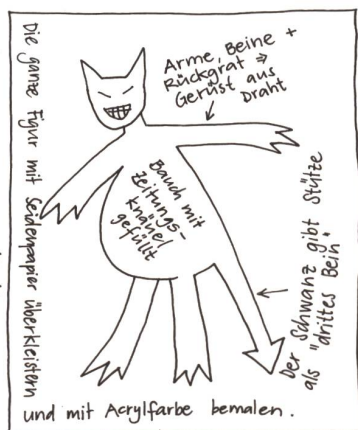 Die ganze Figur mit Seidenpapier überkleistern
und mit Acrylfarbe bemalen.
Arme, Beine +
Rückgrat ⇒
Gerüst aus
Draht
Bauch mit
Zeitungs-
knäuel
gefüllt
Der Schwanz gibt Stütze
als "drittes Bein"